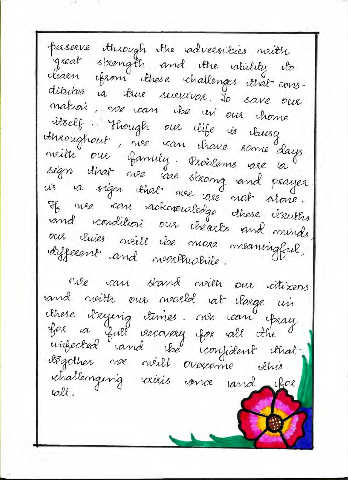 preserve through the adversities with
great strength and the ability to
learn from these challenges that cons-
titutes a true survivor. To save our
nation, we can be in our home
itself. Though our life is busy
throughout, we can have some days
with our family. Problems are a
sign that we are strong and prayer
is a sign that we are not alone.
If we can acknowledge these truths
and condition our hearts and minds
our lives will be more meaningful,
different and worthwhile.
We can stand with our citizens
and with our world at large in
these trying times. We can pray
for a full recovery for all the
infected and be confident that
together we will overcome this
challenging crisis once and for
all.